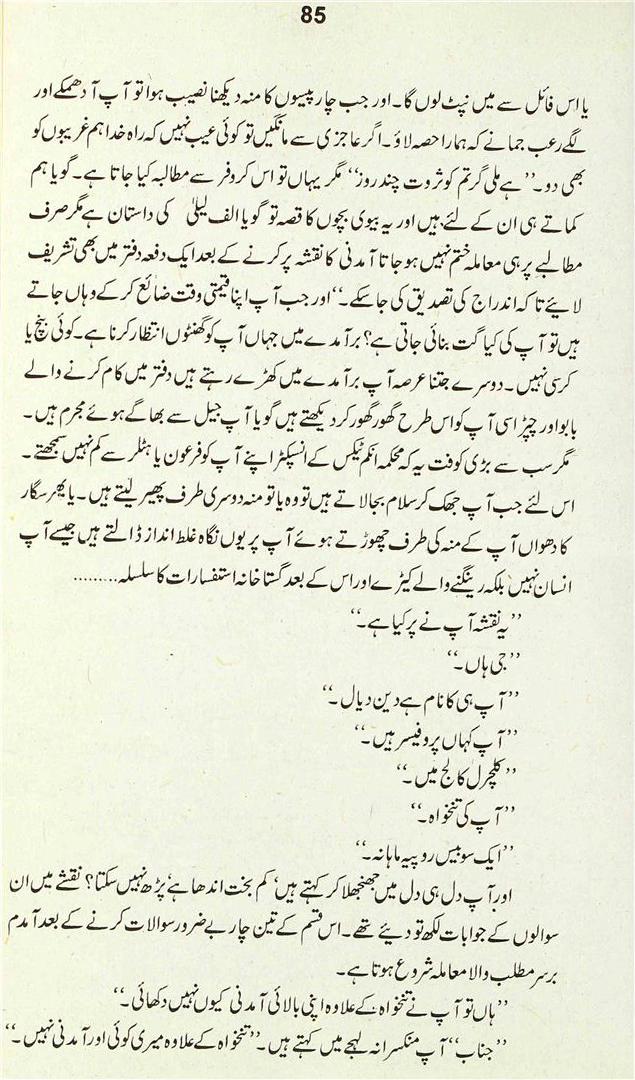 85
یا اس فائل سے میں نپٹ لوں گا۔ اور جب چار پیسوں کا منہ دیکھنا نصیب ہوا تو آپ آ دھمکے اور
لگے رعب جمانے کہ ہمارا حصہ لاؤ۔ اگر عاجزی سے مانگیں تو کوئی عیب نہیں کہ راہ خدا ہم غریبوں کو
بھی دو۔ ’’ہے ملی گر تم کو ثروت چند روز‘‘ مگر یہاں تو اس کروفر سے مطالبہ کیا جاتا ہے۔ گویا ہم
کماتے ہی ان کے لئے ہیں اور یہ بیوی بچوں کا قصہ تو گویا الف لیلیٰ کی داستان ہے مگر صرف
مطالبے پر ہی معاملہ ختم نہیں ہو جاتا آمدنی کا نقشہ پر کرنے کے بعد ایک دفعہ دفتر میں بھی تشریف
لائیے تاکہ اندراج کی تصدیق کی جا سکے۔‘‘ اور جب آپ اپنا قیمتی وقت ضائع کر کے وہاں جاتے
ہیں تو آپ کی کیا گت بنائی جاتی ہے؟ برآمدے میں جہاں آپ کو گھنٹوں انتظار کرنا ہے۔ کوئی بنچ یا
کرسی نہیں۔ دوسرے جتنا عرصہ آپ برآمدے میں کھڑے رہتے ہیں دفتر میں کام کرنے والے
بابو اور چپڑاسی آپ کو اس طرح گھور گھور کر دیکھتے ہیں گویا آپ جیل سے بھاگے ہوئے مجرم ہیں۔
مگر سب سے بڑی کوفت یہ کہ محکمہ انکم ٹیکس کے انسپکٹر اپنے آپ کو فرعون یا ہٹلر سے کم نہیں سمجھتے۔
اس لئے جب آپ جھک کر سلام بجا لاتے ہیں تو وہ یا تو منہ دوسری طرف پھیر لیتے ہیں۔ یا پھر سگار
کا دھواں آپ کے منہ کی طرف چھوڑتے ہوئے آپ پر یوں نگاہ غلط انداز ڈالتے ہیں جیسے آپ
انسان نہیں بلکہ رینگنے والے کیڑے اور اس کے بعد گستاخانہ استفسارات کا سلسلہ.........
’’یہ نقشہ آپ نے پر کیا ہے۔‘‘
’’جی ہاں۔‘‘
’’آپ ہی کا نام ہے دین دیال۔‘‘
’’آپ کہاں پروفیسر ہیں۔‘‘
’’کلچرل کالج میں۔‘‘
’’آپ کی تنخواہ۔‘‘
’’ایک سو بیس روپیہ ماہانہ۔‘‘
اور آپ دل ہی دل میں جھنجھلا کر کہتے ہیں‘ کم بخت اندھا ہے‘ پڑھ نہیں سکتا؟ نقشے میں ان
سوالوں کے جوابات لکھ تو دیئے تھے۔ اس قسم کے تین چار بے ضرور سوالات کرنے کے بعد آمدم
برسر مطلب والا معاملہ شروع ہوتا ہے۔
’’ہاں تو آپ نے تنخواہ کے علاوہ اپنی بالائی آمدنی کیوں نہیں دکھائی۔‘‘
’’جناب‘‘ آپ منکسرانہ لہجے میں کہتے ہیں۔ ’’تنخواہ کے علاوہ میری کوئی اور آمدنی نہیں۔‘‘